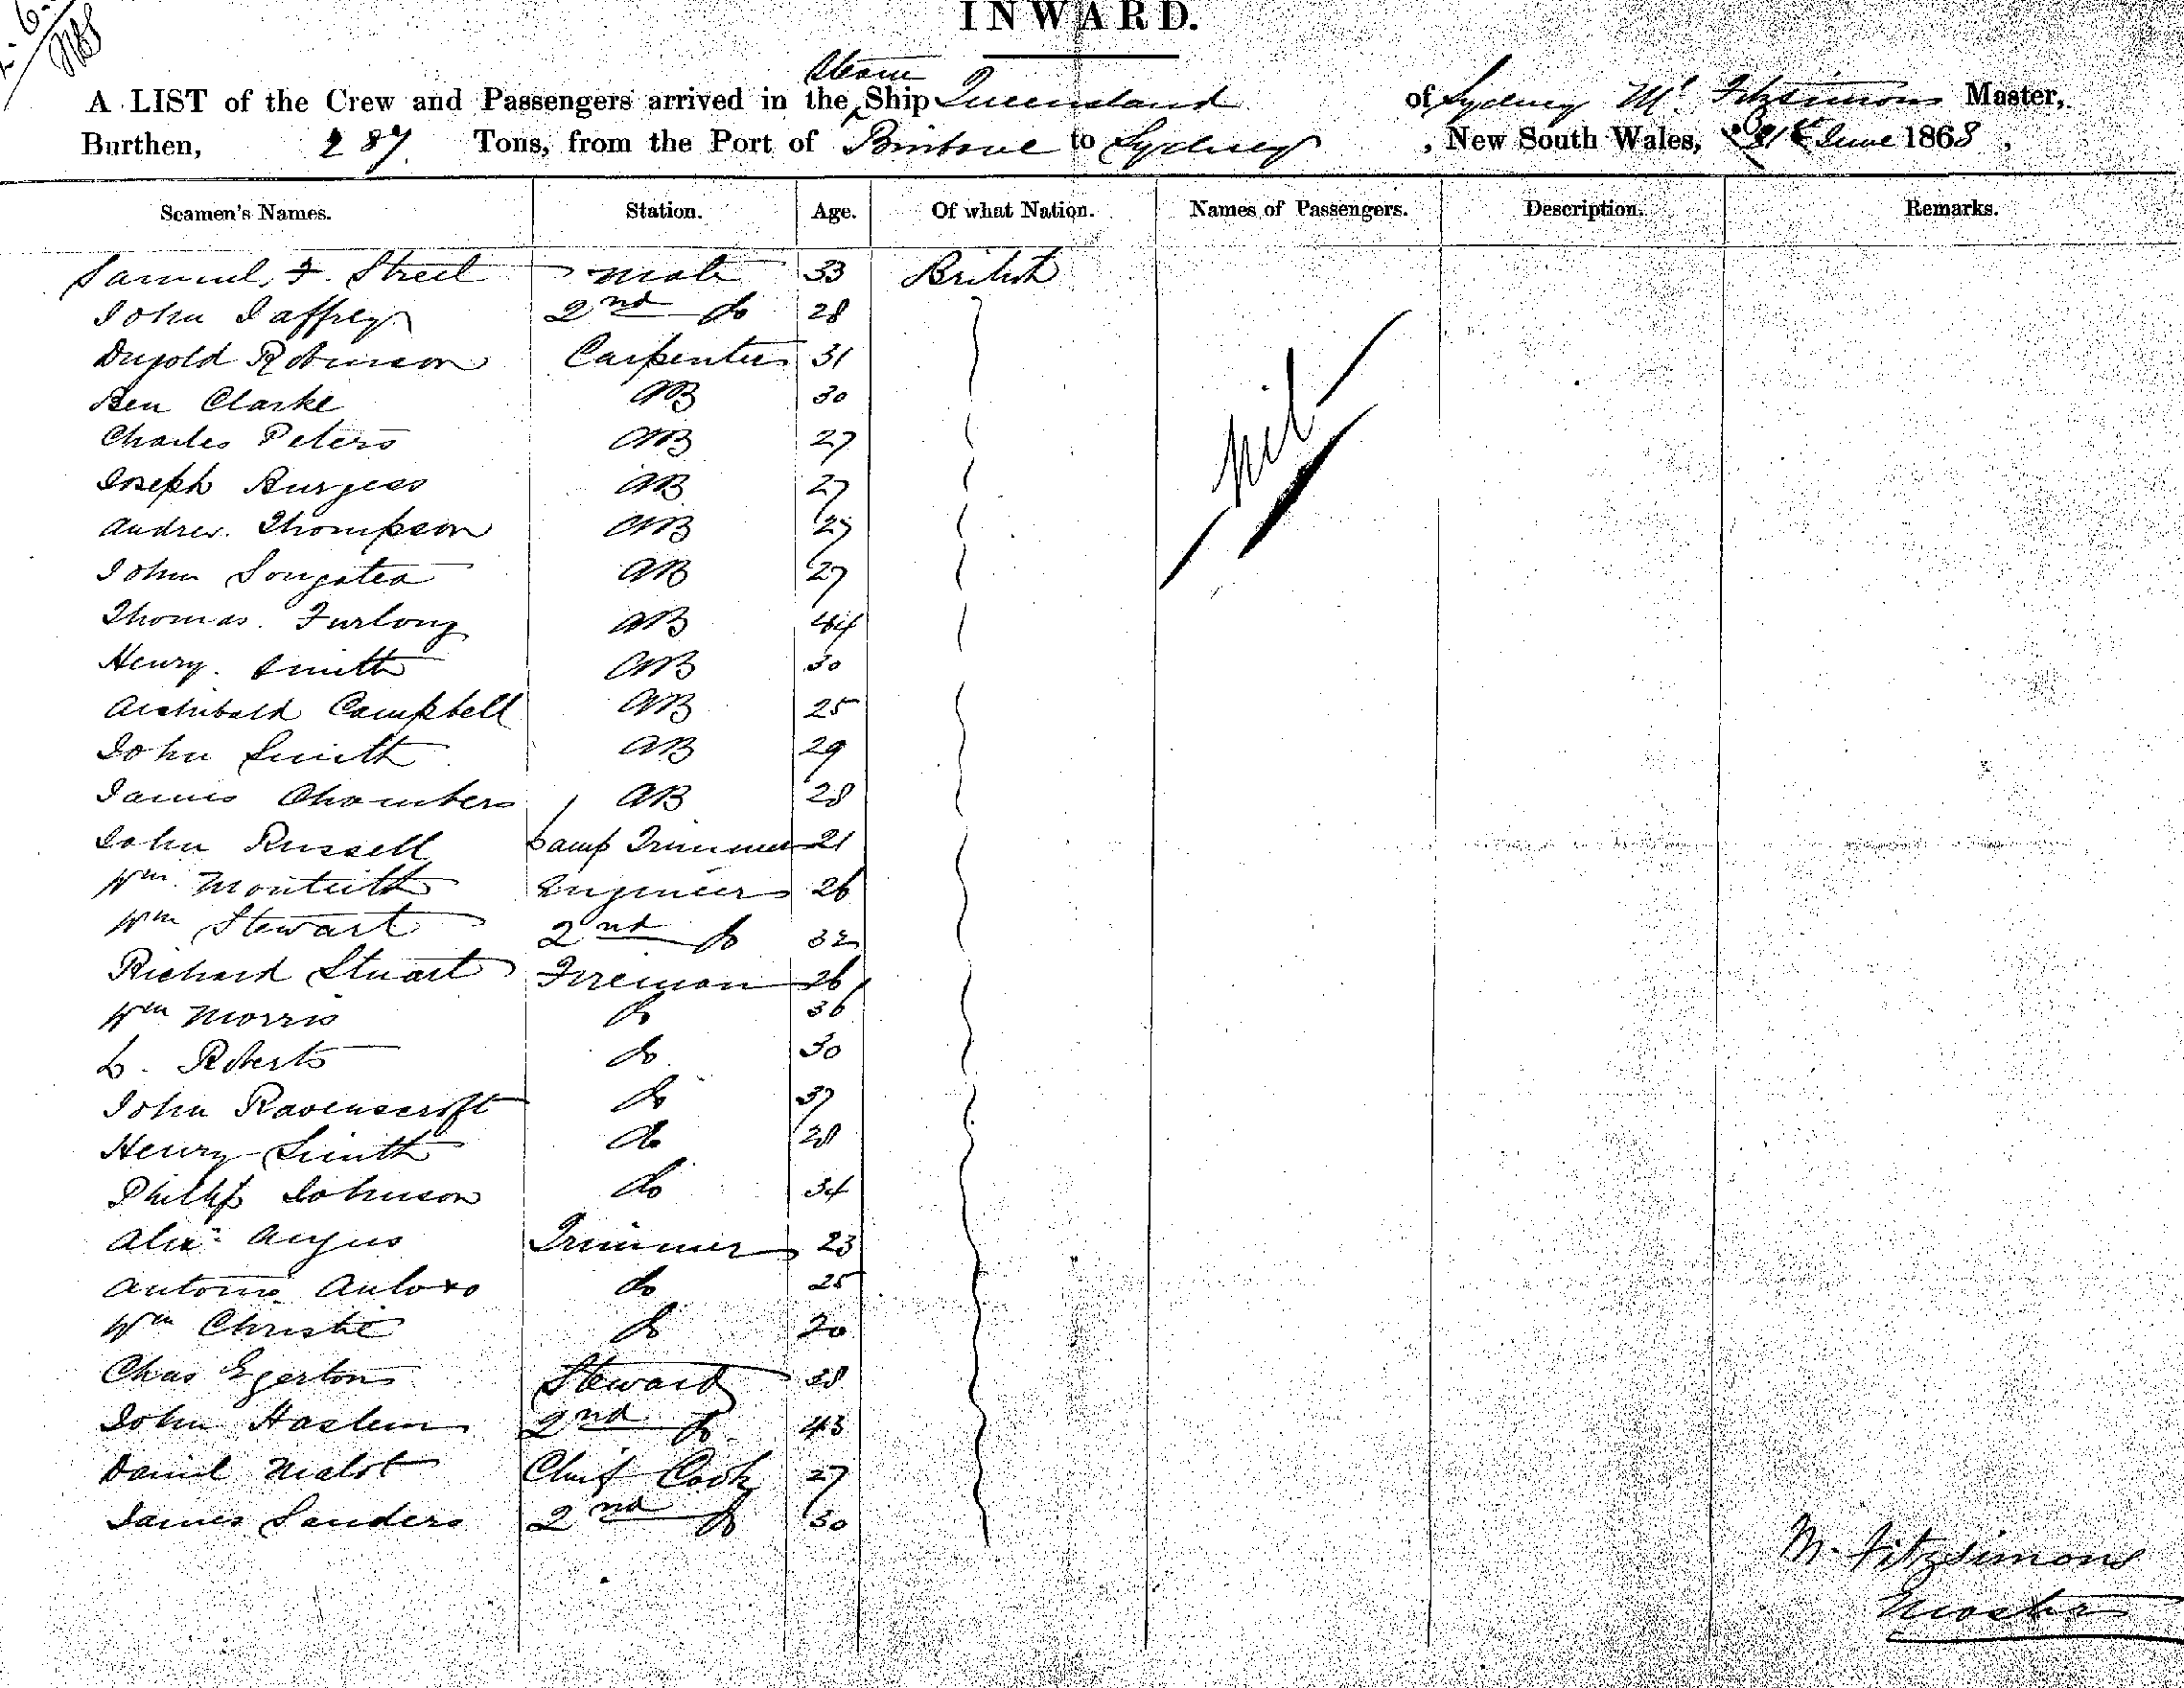 INWARD.
Steam
A LIST of the Crew and Passengers arrived in the Ship Queensland of Sydney M. Fitzsimons Master,
Burthen, 287 Tons, from the Port of Brisbane to Sydney, New South Wales, June 1868,
Seamen's Names. Station. Age. Of what Nation. Names of Passengers. Description. Remarks.
Samuel F. Street Mate 33 British
John Jaffrey 2nd do 28
Dugold Robinson Carpenter 31
Ben Clarke AB 30
Charles Peters AB 27
nil
Joseph Burgess AB 27
Andrew Thompson AB 27
John AB 27
Thomas Furlong AB 44
Henry Smith AB 30
Archibald Campbell AB 25
John Smith AB 29
James Chambers AB 28
John Russell Lamp Trimmer 21
Wm Monteith Engineer 26
Wm Stewart 2nd do 32
Richard Stuart Fireman 26
Wm Morris do 36
L. Roberts do 30
John Ravenscroft do 37
Henry Smith do 28
Philip Johnson do 34
Alexr Angus Trimmer 23
Antonio do 25
Wm Christie do 20
Chas Egerton Steward 38
John Haslem 2nd do 43
Daniel Chief Cook 27
James Sanders 2nd do 30
M. Fitzsimons
Master